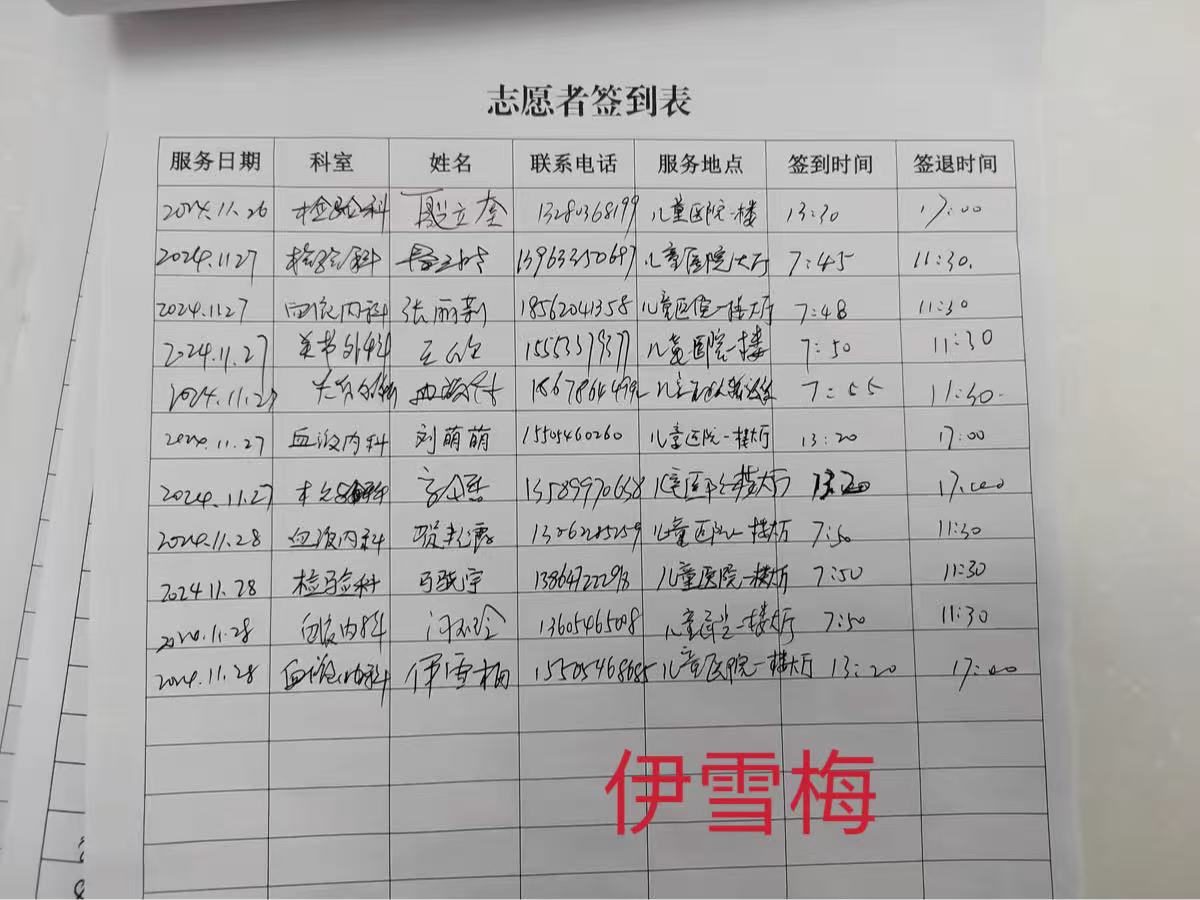 志愿者签到表
服务日期 科室 姓名 联系电话 服务地点 签到时间 签退时间
2024.11.26 检验科 立奎 13280368199 儿童医院一楼 13:30 17:00
2024.1127 检验科 13963350697 儿童医院大厅 7:45 11:30.
2024.1127 血液内科 张丽新 18562041358 儿童医院一楼大厅 7:48 11:30
2024.11.27 外科 儿童医院一楼 7:50 11:30
2024.11.27 7:55 11:30
2024.11.27 血液内科 刘萌萌 15505460260 儿童医院一楼大厅 13:20 17:00
2024.11.27 13589970658 儿童医院一楼大厅 13:20 17:00
2024.11.28 血液内科 儿童医院一楼大厅 7:50 11:30
2024.11.28 检验科 马骏宇 儿童医院一楼大厅 7:50 11:30
11.28 血液内科 13605465008 儿童 一楼大厅 7:50 11:30
2024.11.28 血液内科 伊雪梅 15505468685 儿童医院一楼大厅 13:20 17:00
伊雪梅